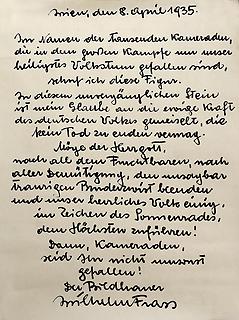 Wien, den 8. April 1935.
Im Namen der tausenden Kameraden,
die in dem großen Kampfe um unser
heiligstes Volkstum gefallen sind,
schuf ich diese Figur.
In diesen unvergänglichen Stein
ist mein Glaube an die ewige Kraft
des deutschen Volkes gemeißelt, die
kein Tod zu enden vermag.
Möge der Herrgott,
nach all dem Furchtbaren, nach
aller Demütigung, den unsagbar
traurigen Bruderzwist beenden
und unser herrliches Volk einig,
im Zeichen des Sonnenrades,
dem Höchsten zuführen!
Dann, Kameraden,
seid Ihr nicht umsonst
gefallen!
Der Bildhauer
Wilhelm Frass